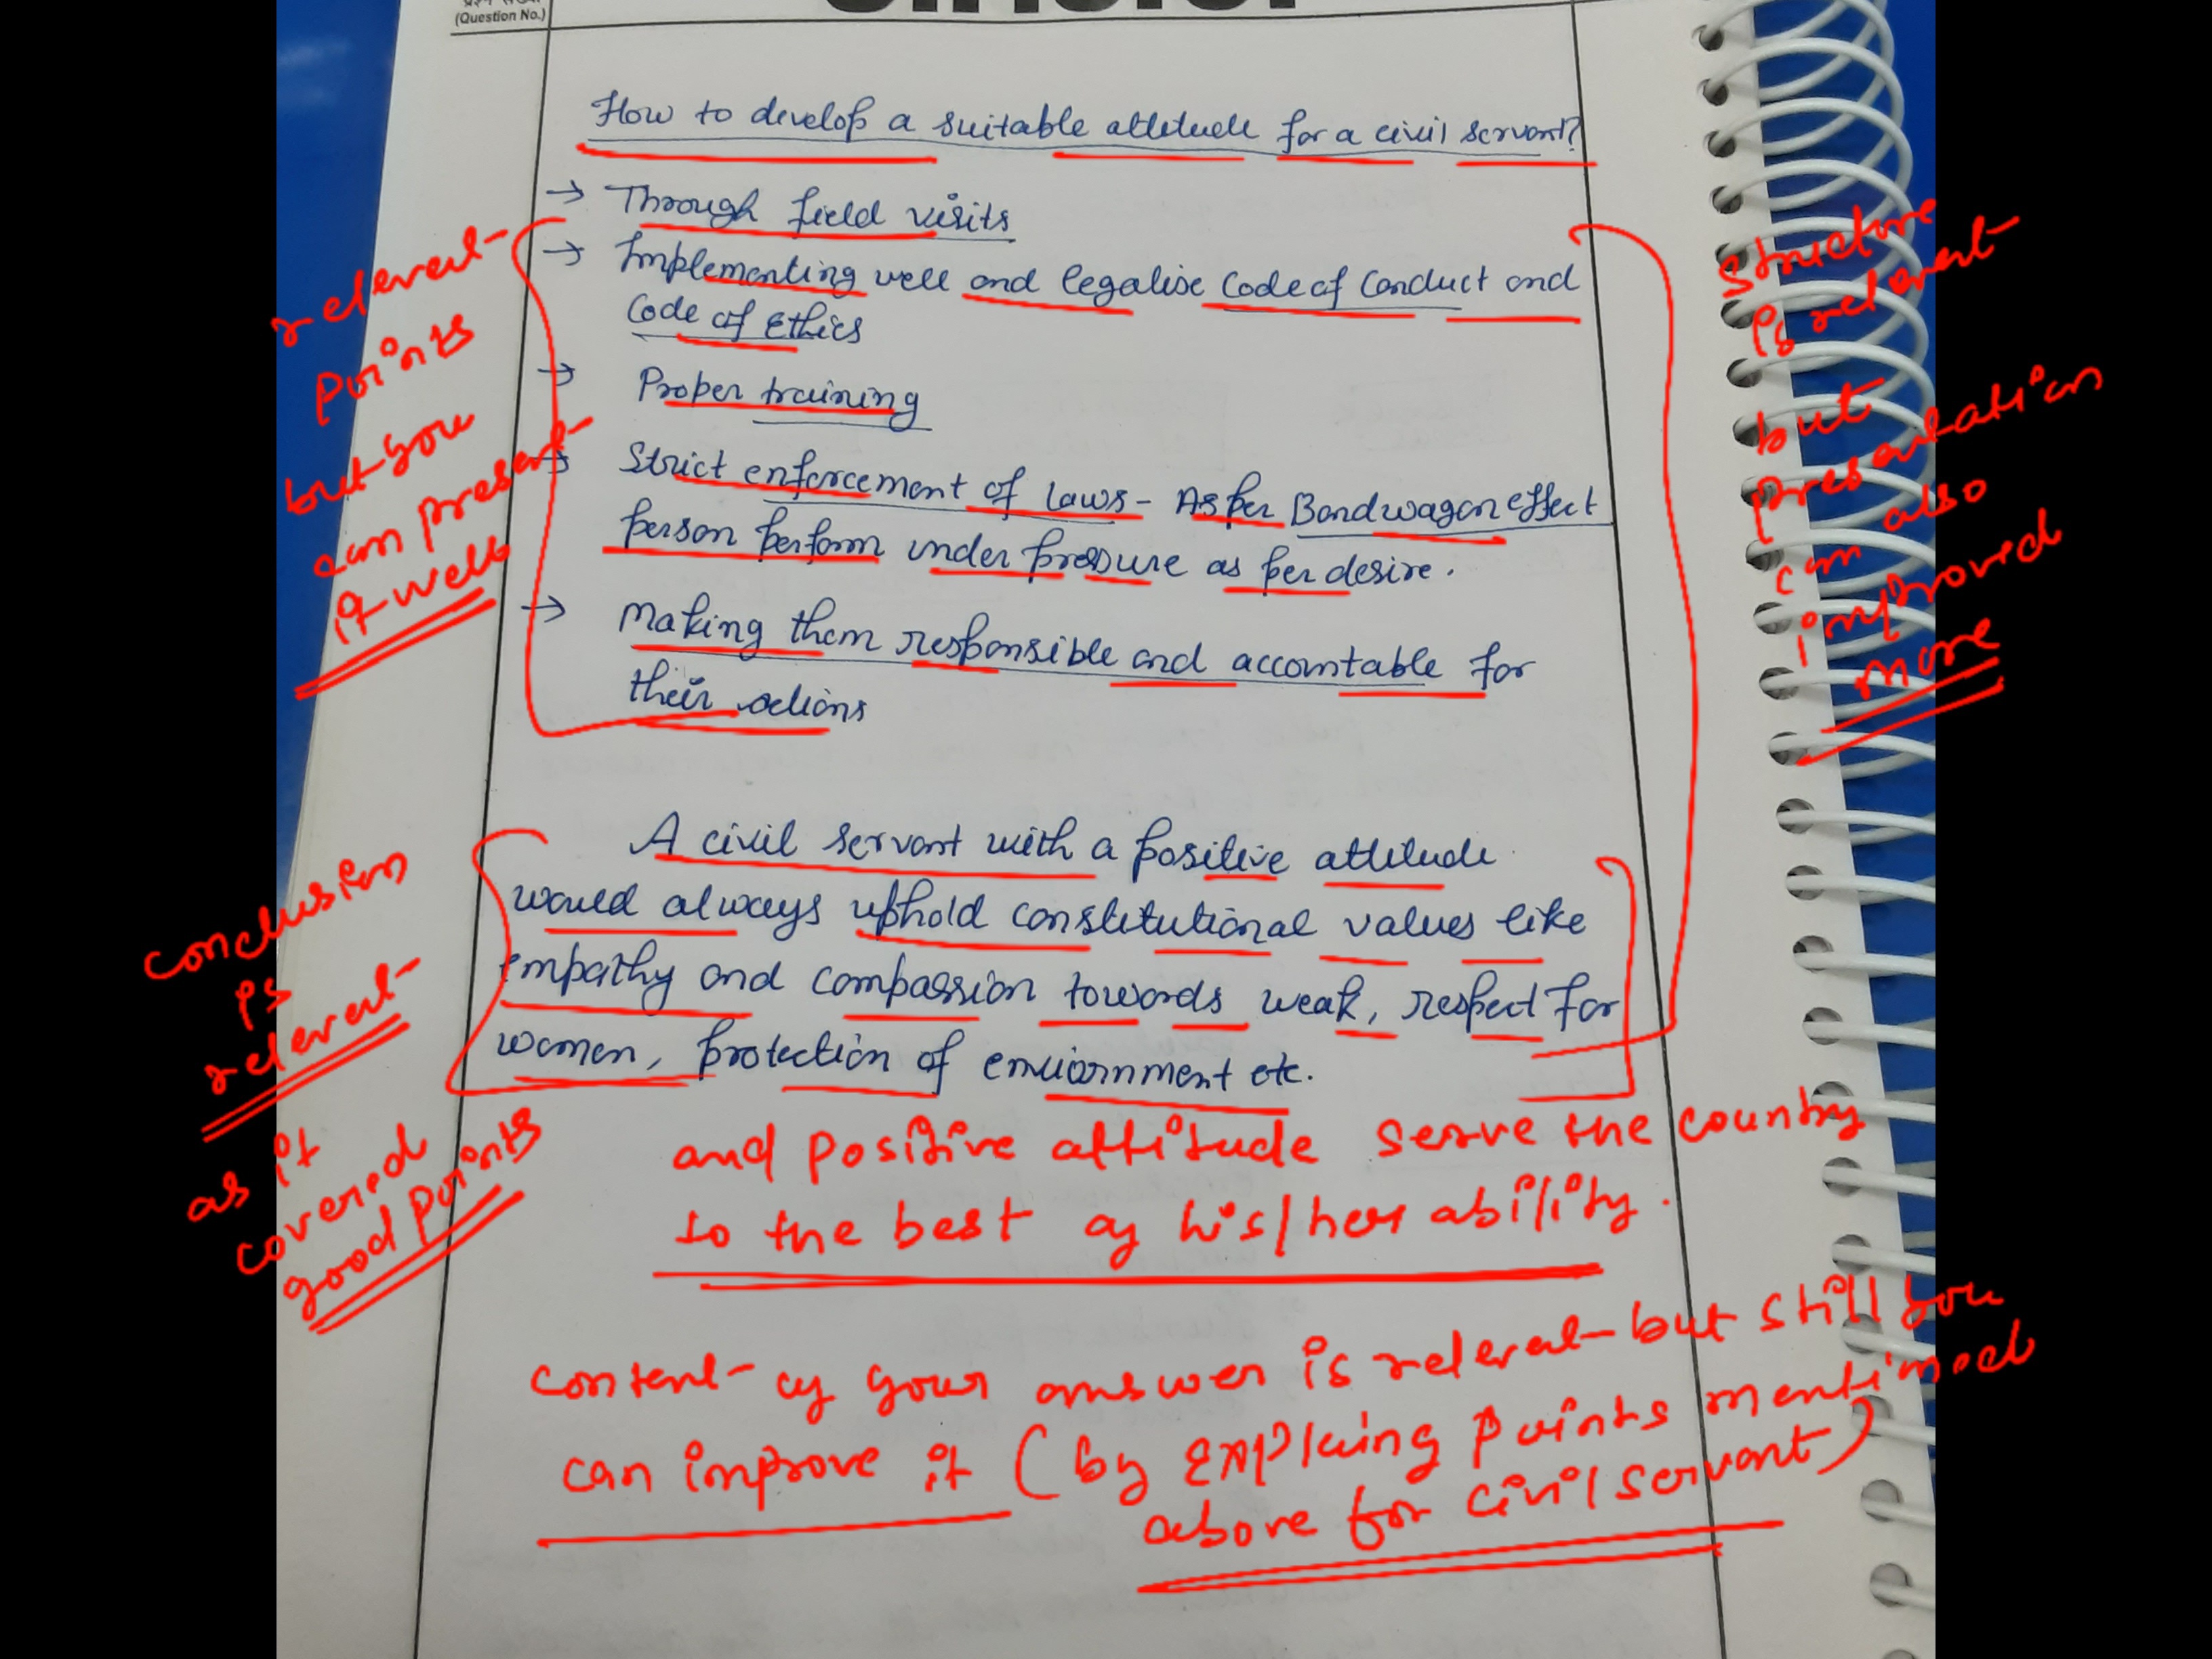 (Question No.)
How to develop a suitable attitude for a civil servant?
→ Through field visits
→ Implementing well and legalise Code of Conduct and
Code of Ethics
→ Proper training
→ Strict enforcement of laws - As per Bandwagon effect
person perform under pressure as per desire.
→ Making them responsible and accountable for
their actions
relevant
points
but you
can present
it well
structure
is relevant
but
presentation
can also
improved
more
A civil servant with a positive attitude
would always uphold constitutional values like
empathy and compassion towards weak, respect for
women, protection of enviornment etc.
conclusion
is
relevant
as it
covered
good points
and positive attitude serve the country
to the best of his/her ability.
content of your answer is relevant but still you
can improve it (by explaing points mentioned
above for civil servant)